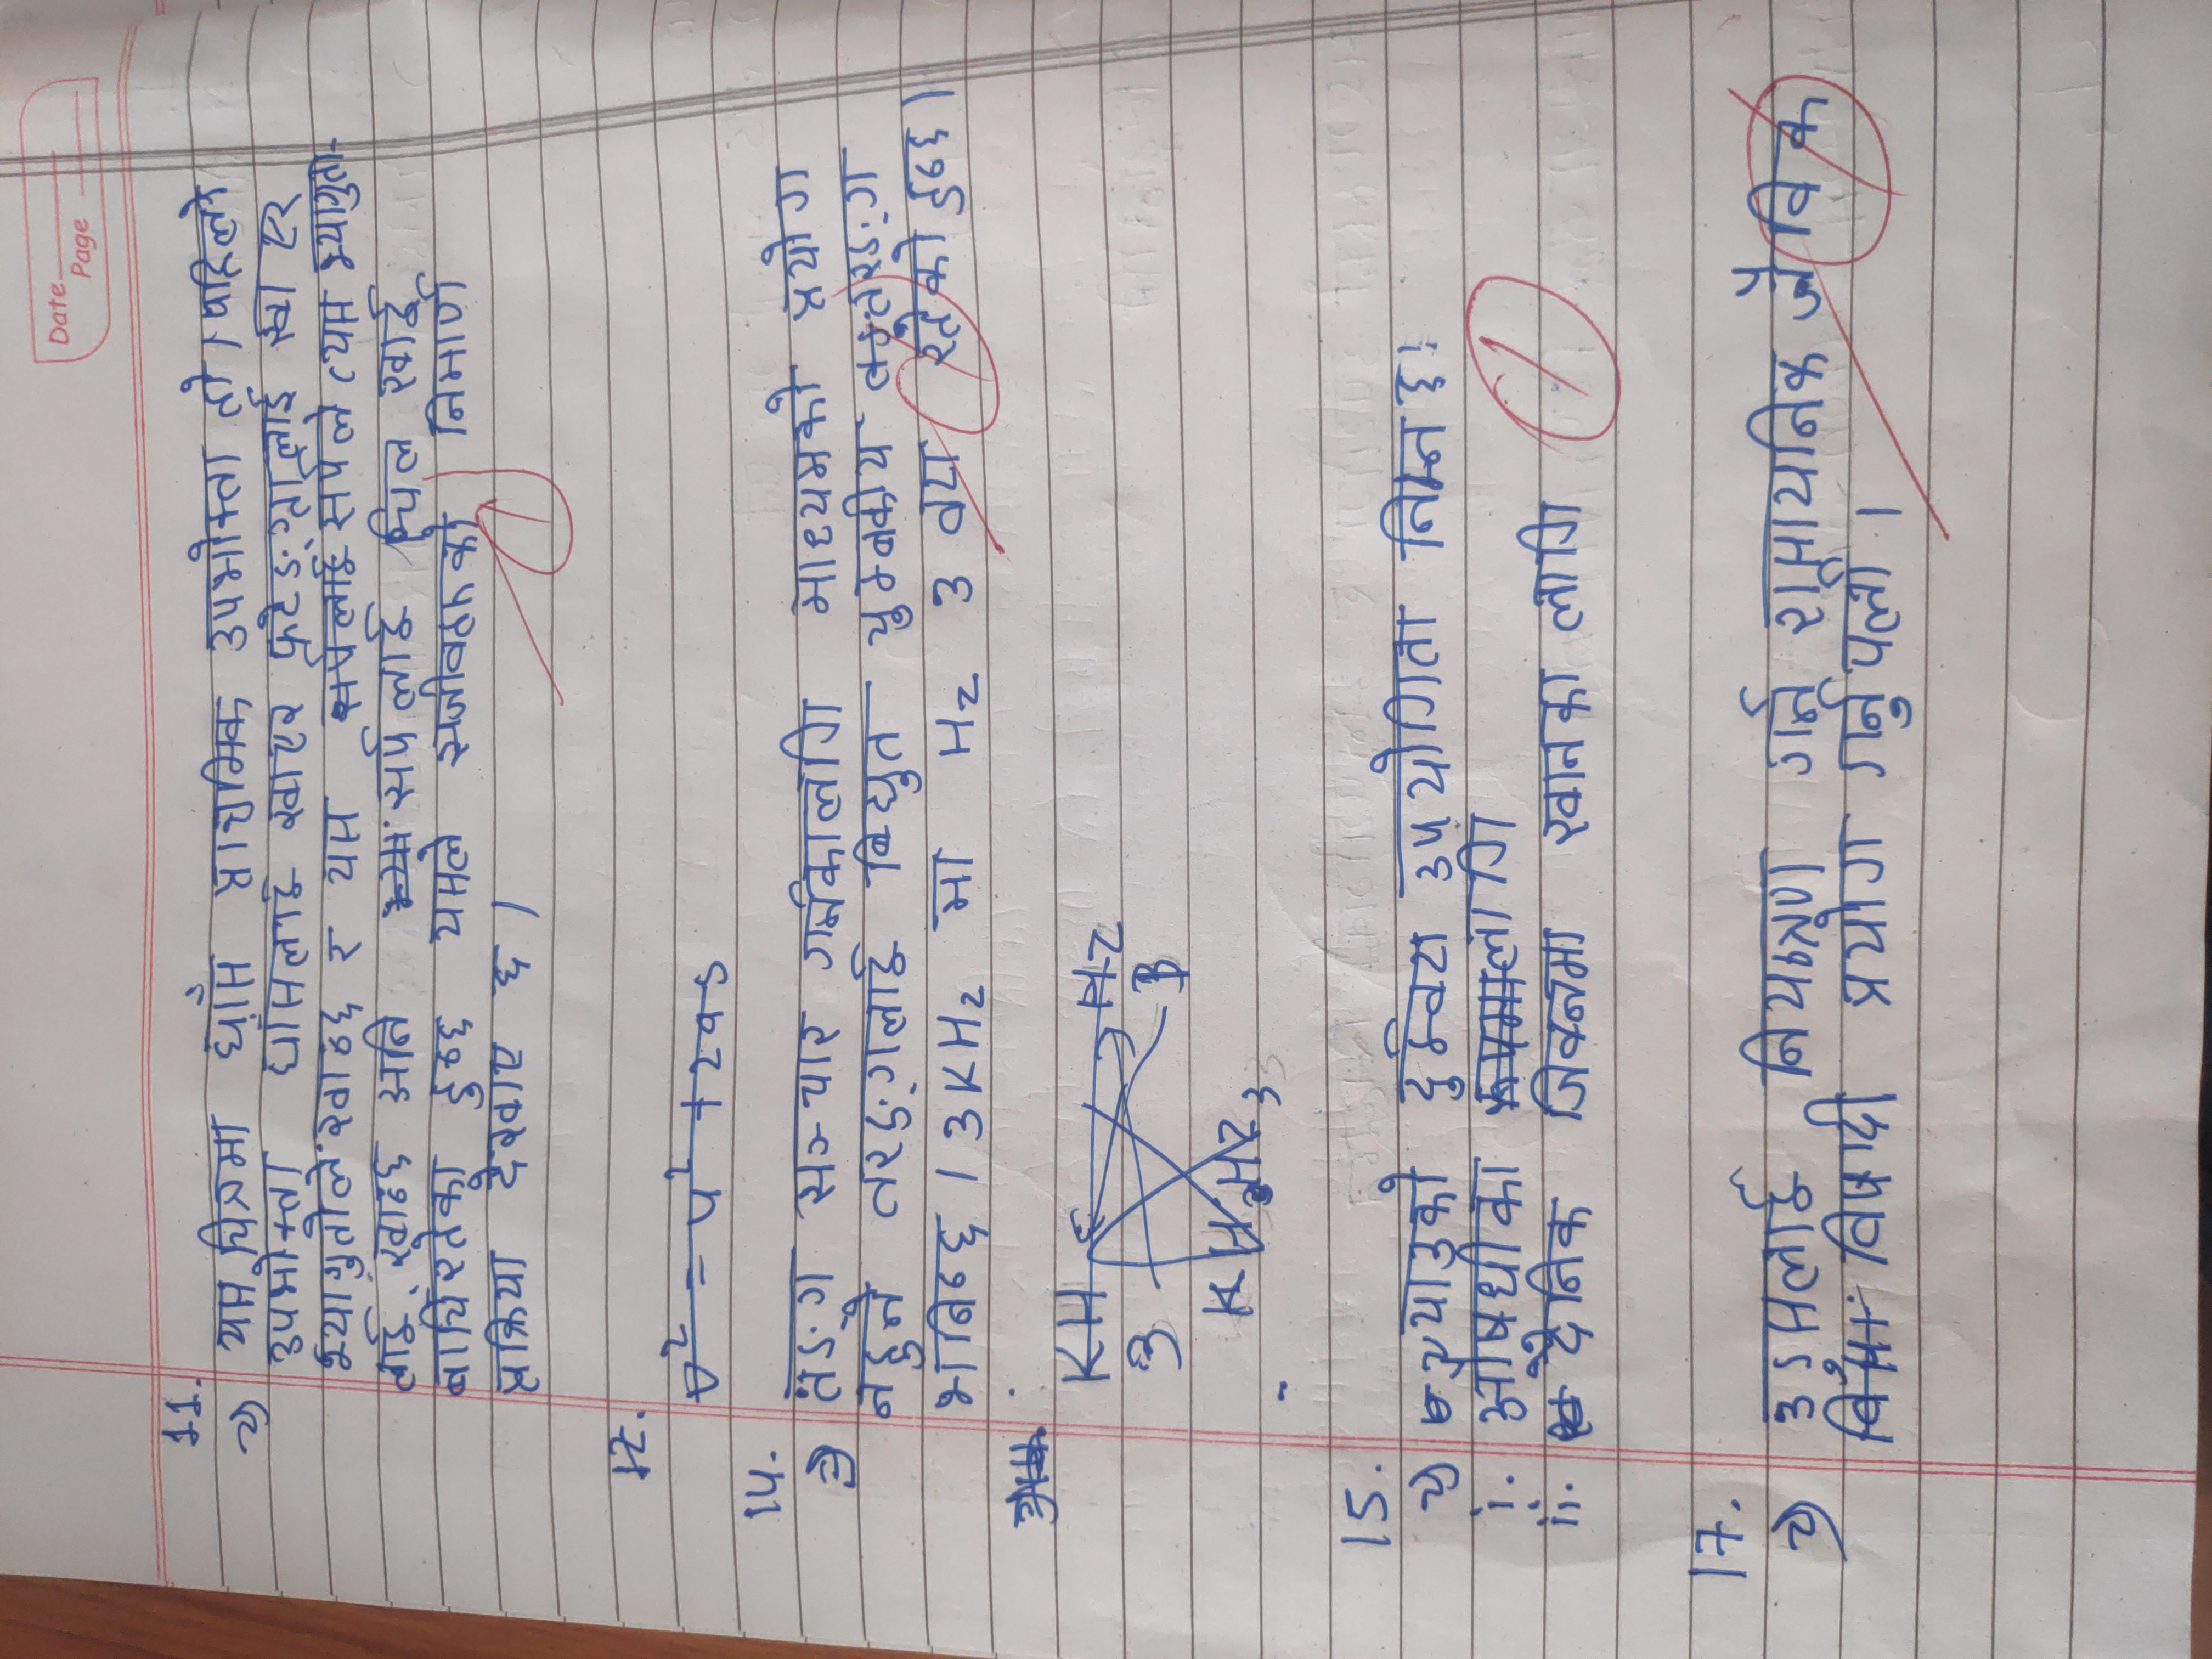 Date
Page
11.
यस चित्रमा घाँस प्राथमिक उपभोक्ता हो। पहिलो
उपभोक्ता घाँसलाई खाएर फटेङ्ग्रालाई खाएर
भ्यागुतोले खान्छ र यस सर्पलाई सर्पले त्यस भ्यागुता-
लाई खान्छ अनि सर्पलाई चिल खाई
बाचिरहेका हुन्छ यसले सजीवहरुको निमार्ण
प्रक्रिया देखाए छ।
12.
v² = u² + 2as
14.
तङ्ग सञ्चार गर्नकालागि माध्यमको प्रयोग
नहुने तरङ्गलाई बिद्युत चुम्बकीय तरङ्ग
भनिन्छ। 3KHz मा Hz 3 वटा रहेको हुन्छ।
KH Hz
3 3
KH3Hz3
15.
च्याउको दुईवटा उपयोगिता निम्न छ।
i. औषधीका लागि
ii. दैनिक जिवनमा खानका लागि
17.
उडुसलाई नियन्त्रण गर्न रासायनिक जैविक
विषादी प्रयोग गर्नुपर्ला।